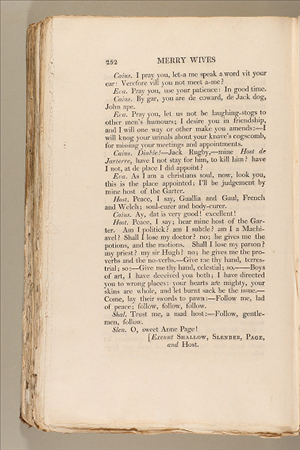 252 MERRY WIVES
Caius. I pray you, let-a me speak a word vit your
ear: Verefore vill you not meet a-me?
Eva. Pray you, use your patience: In good time.
Caius. By gar, you are de coward, de Jack dog,
John ape.
Eva. Pray you, let us not be laughing-stogs to
other men's humours; I desire you in friendship,
and I will one way or other make you amends:—I
will knog your urinals about your knave's cogscomb,
for missing your meetings and appointments.
Caius. Diable!—Jack Rugby,—mine Host de
Jarterre, have I not stay for him, to kill him? have
I not, at de place I did appoint?
Eva. As I am a christians soul, now, look you,
this is the place appointed; I'll be judgement by
mine host of the Garter.
Host. Peace, I say, Guallia and Gaul, French
and Welch; soul-curer and body-curer.
Caius. Ay, dat is very good! excellent!
Host. Peace, I say; hear mine host of the Gar-
ter. Am I politick? am I subtle? am I a Machi-
avel? Shall I lose my doctor? no; he gives me the
potions, and the motions. Shall I lose my parson?
my priest? my sir Hugh? no; he gives me the pro-
verbs and the no-verbs.—Give me thy hand, terres-
trial; so:—Give me thy hand, celestial; so.——Boys
of art, I have deceived you both; I have directed
you to wrong places: your hearts are mighty, your
skins are whole, and let burnt sack be the issue.—
Come, lay their swords to pawn:—Follow me, lad
of peace; follow, follow, follow.
Shal. Trust me, a mad host:—Follow, gentle-
men, follow.
Slen. O, sweet Anne Page!
[Exeunt SHALLOW, SLENDER, PAGE,
and Host.